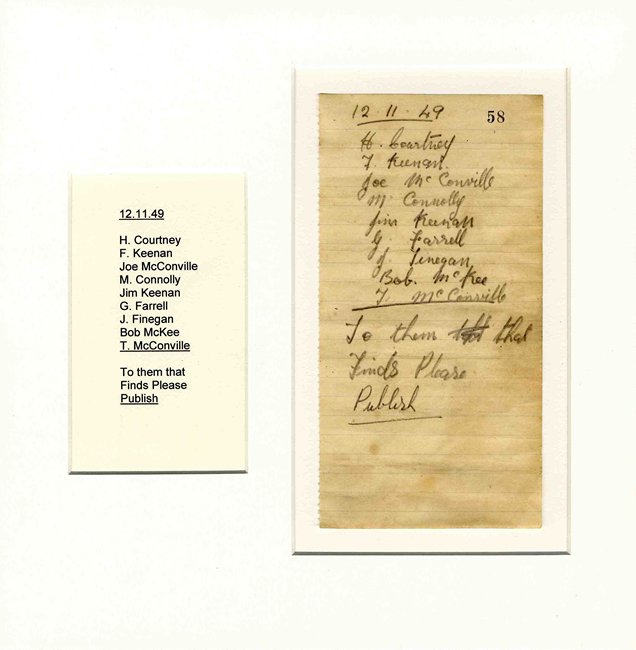 12.11.49
H. Courtney
F. Keenan
Joe McConville
M. Connolly
Jim Keenan
G. Farrell
J. Finegan
Bob McKee
T. McConville
To them that
Finds Please
Publish
12.11.49 58
H. Courtney
F. Keenan.
Joe McConville
M. Connolly
Jim Keenan
G. Farrell
J. Finegan,
Bob. McKee
T. McConville
To them that
Finds Please
Publish